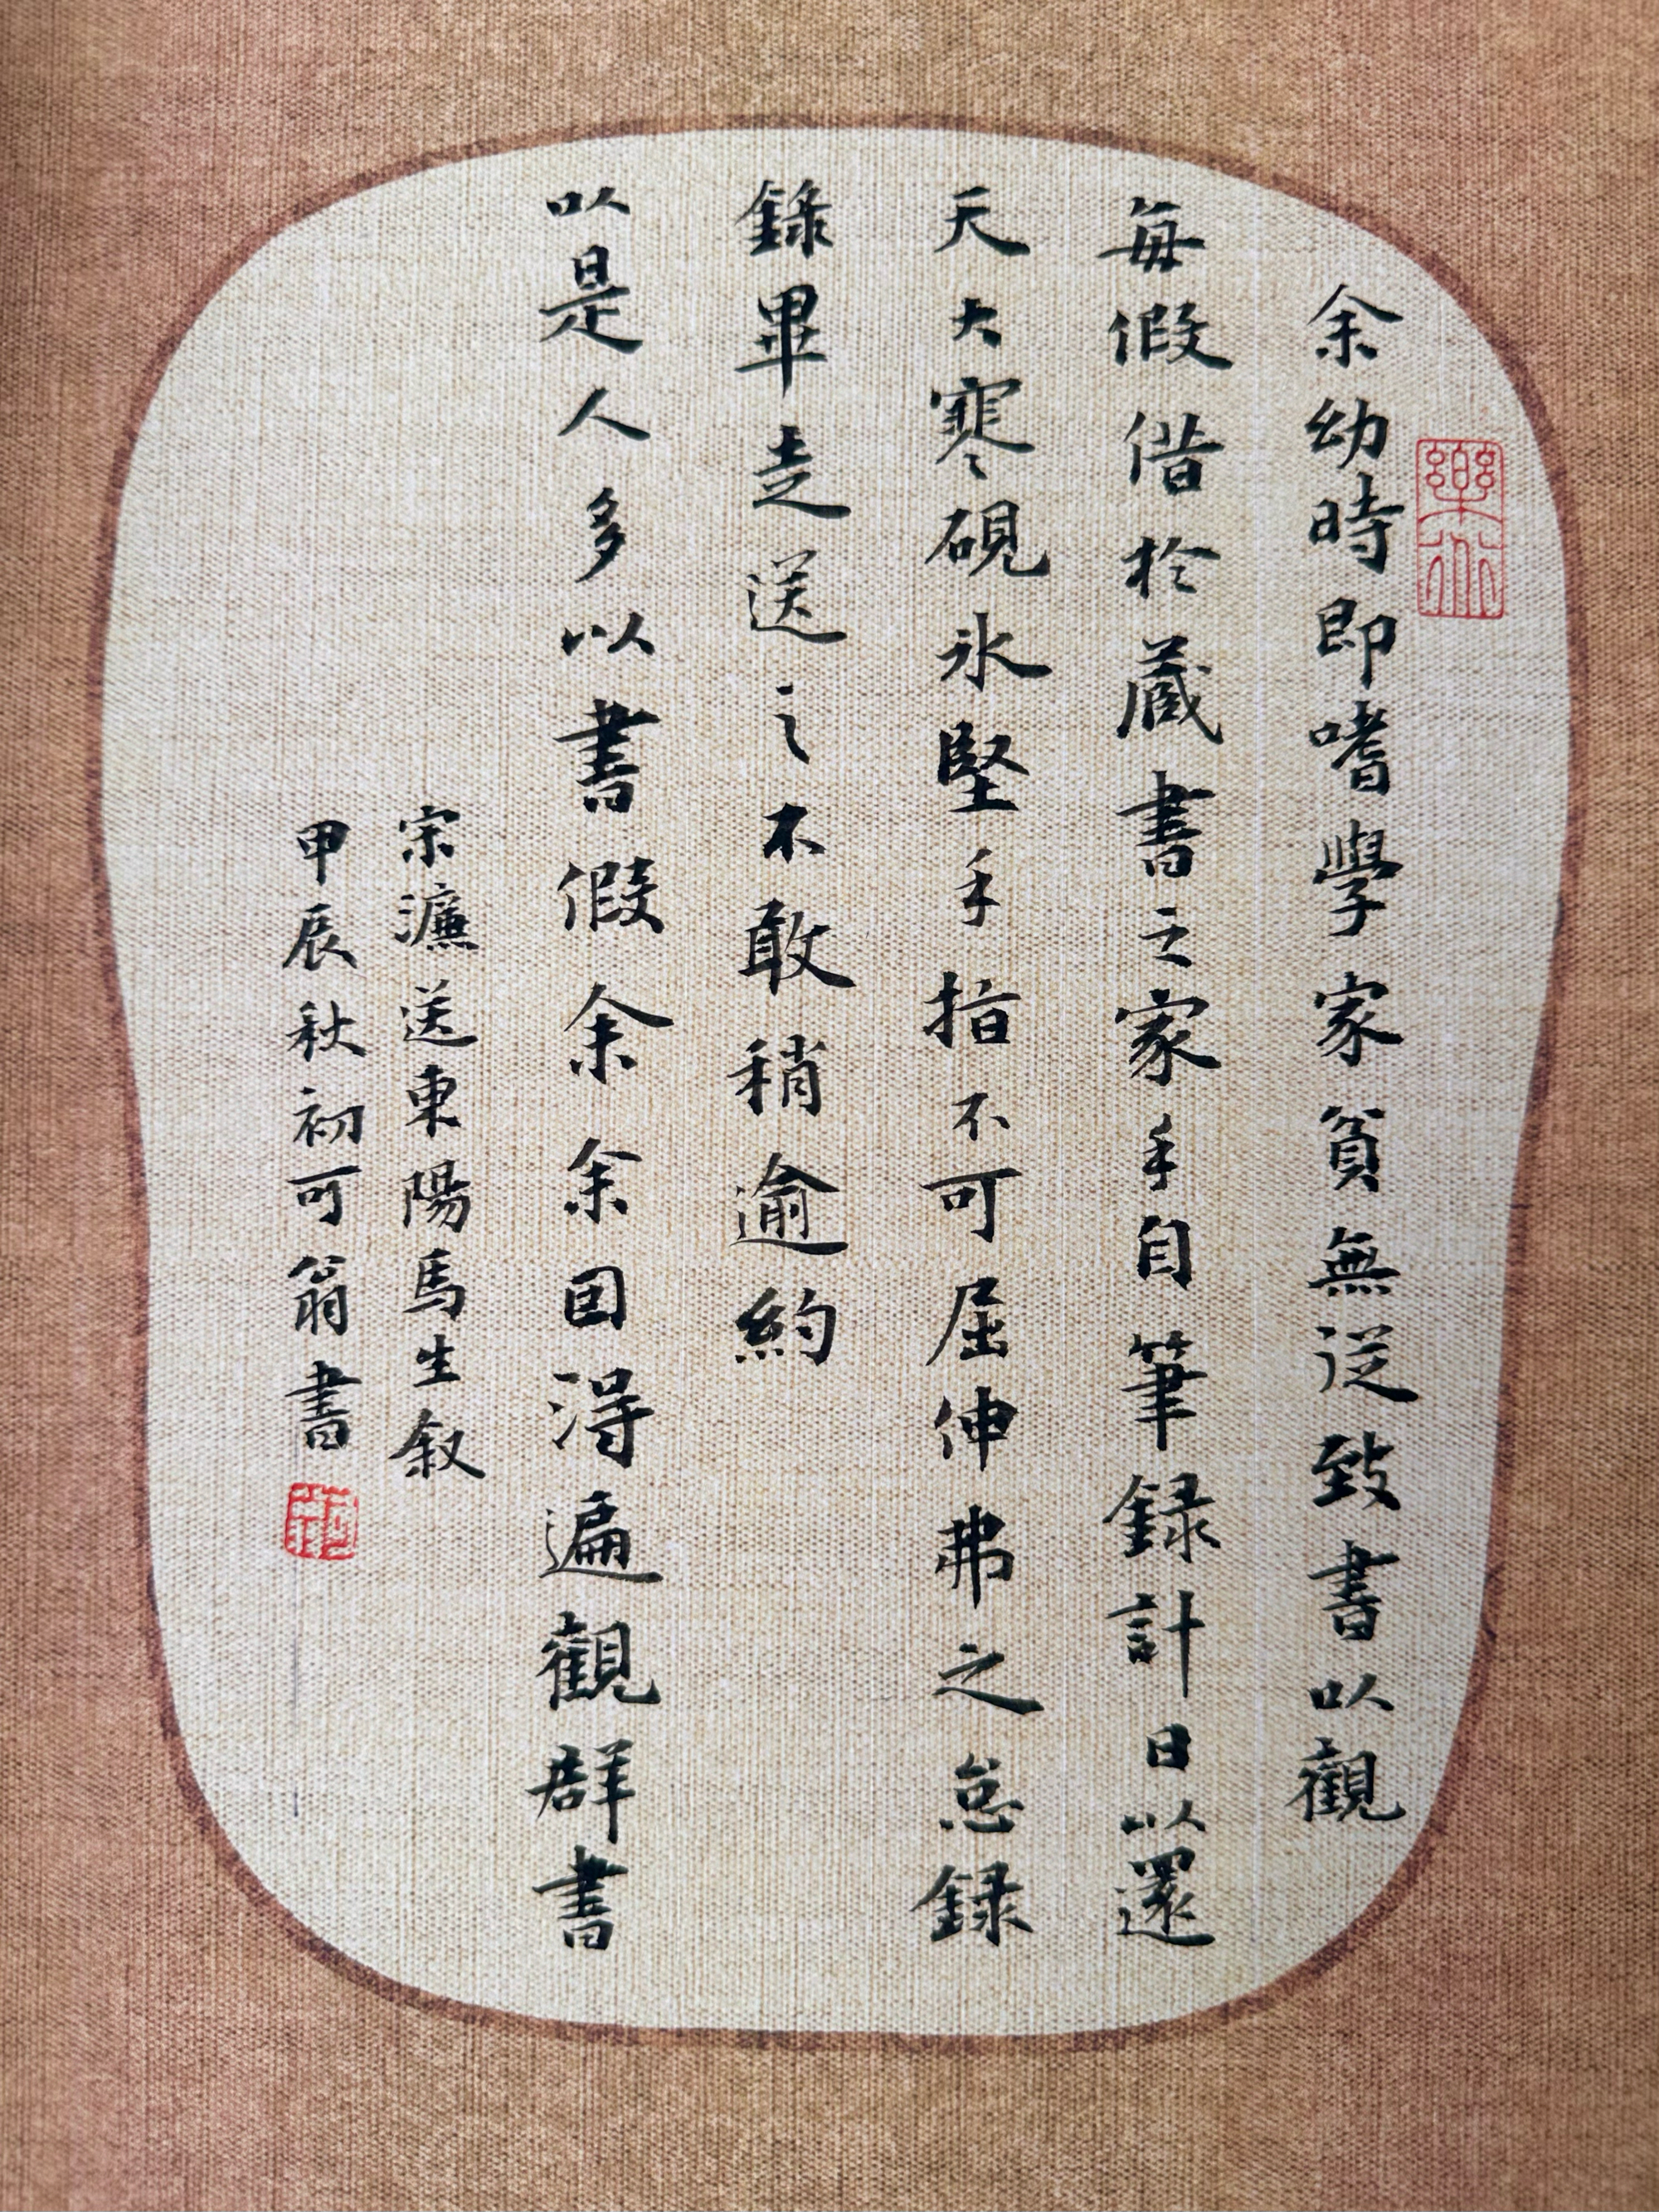 余幼時即嗜學家貧無從致書以觀
每假借於蔵書之家手自筆録計日以還
天大寒硯氷堅手指不可屈伸弗之怠録
錄畢走送之不敢稍逾約
以是人多以書假余余因得遍觀群書
宋濂送東陽馬生叙
甲辰秋初可翁書